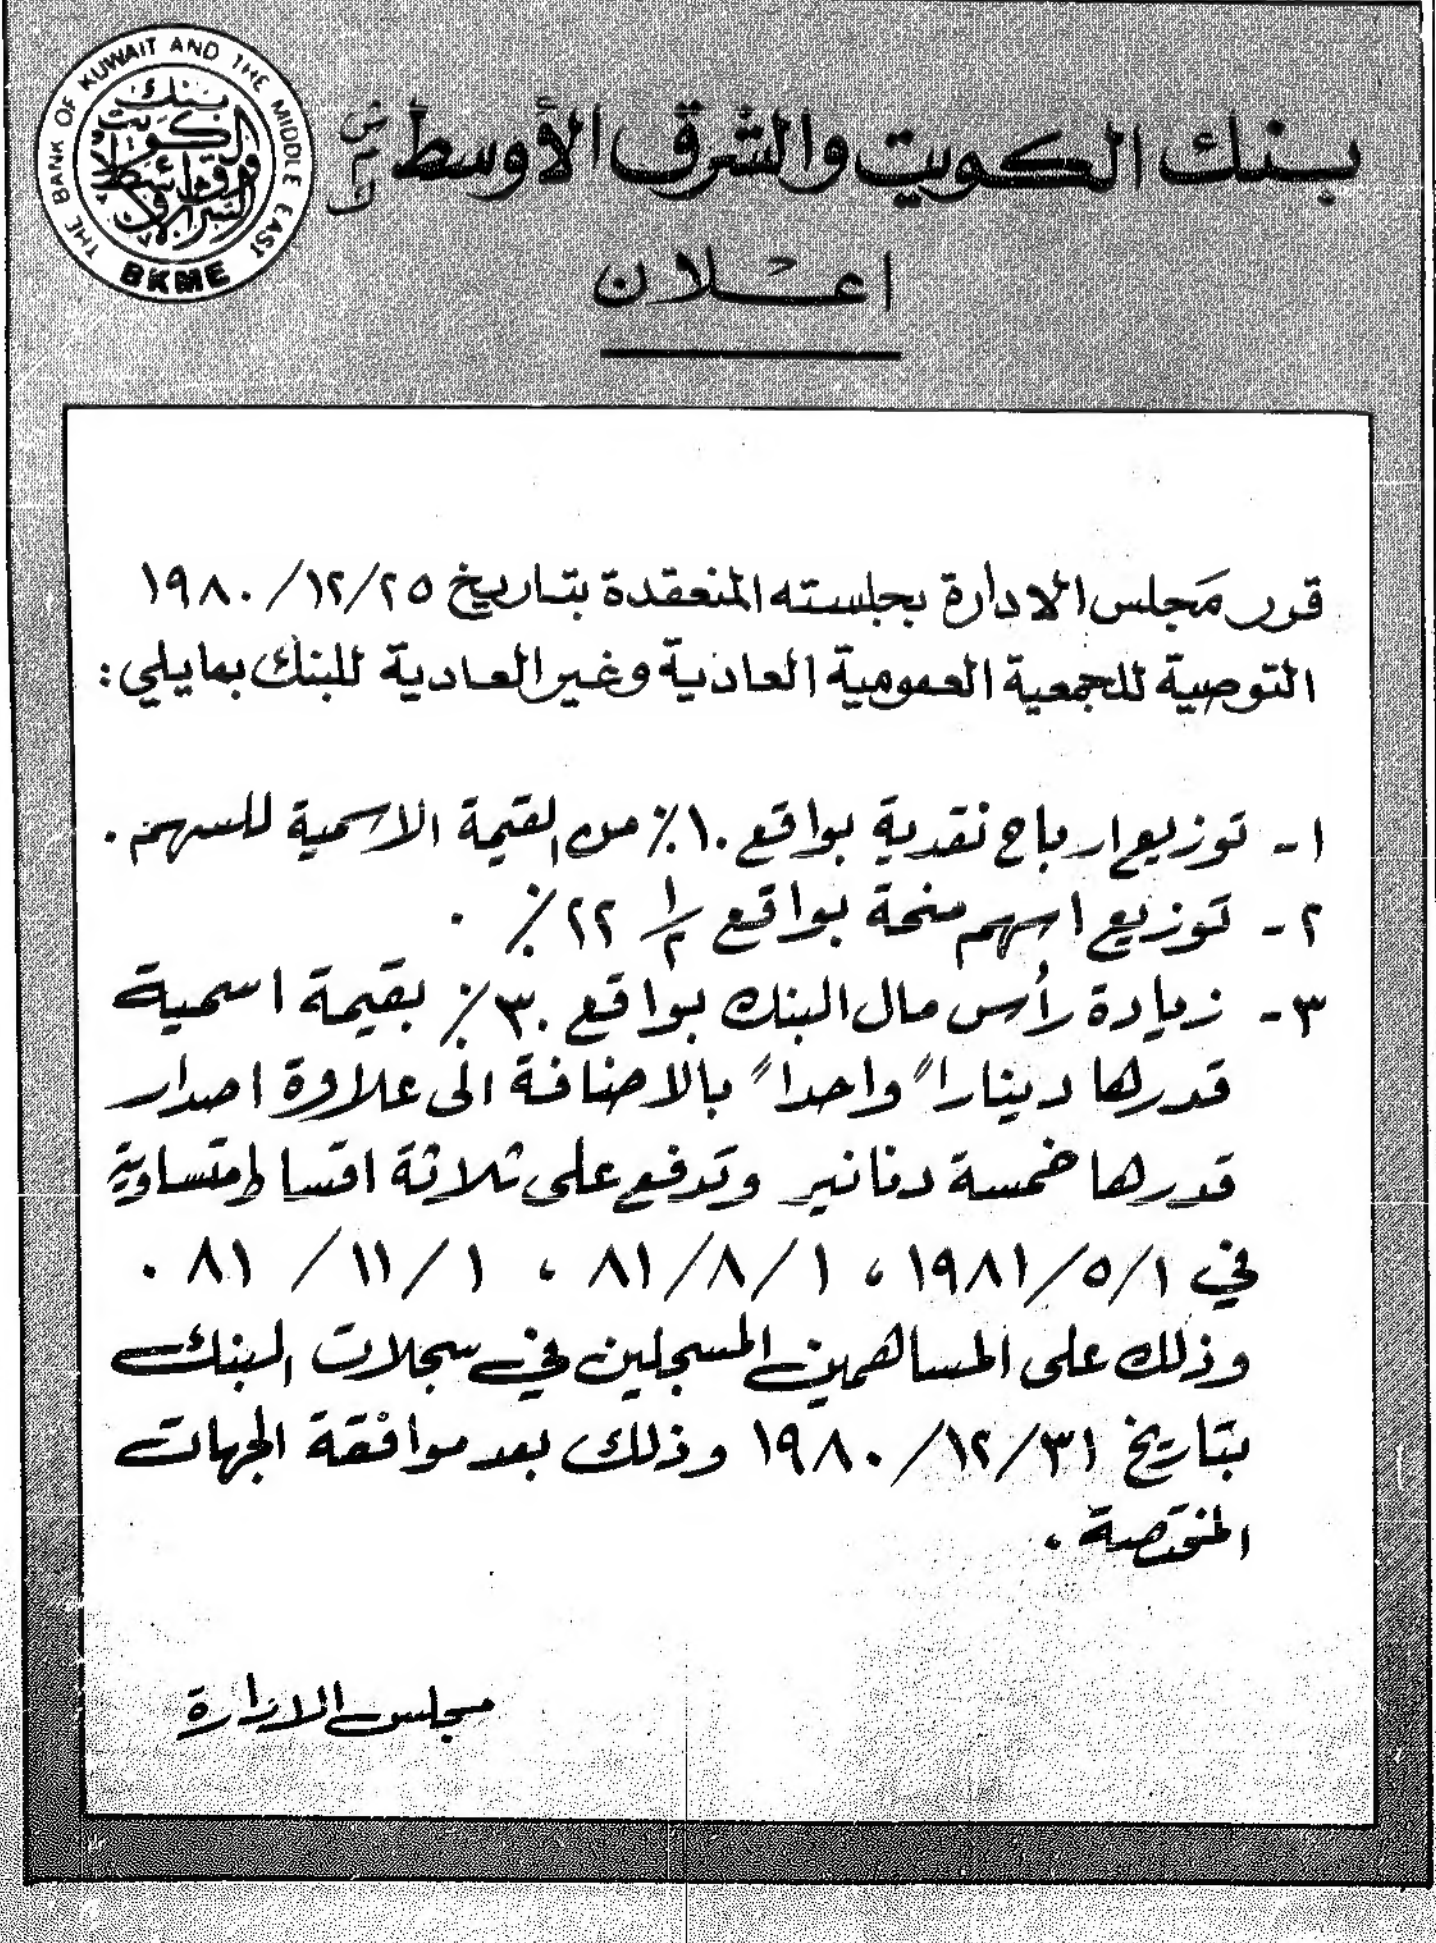 THE BANK OF KUWAIT AND THE MIDDLE EAST
بنك الكويت والشرق الأوسط
BKME
بنك الكويت والشرق الأوسط ش م ك
اعلان
قرر مجلس الادارة بجلسته المنعقدة بتاريخ ١٩٨٠/١٢/٢٥
التوصية للجمعية العمومية العادية وغير العادية للبنك بمايلي:
١- توزيع ارباح نقدية بواقع ١٠٪ من القيمة الاسمية للسهم.
٢- توزيع اسهم منحة بواقع ١/٢ ٢٢٪.
٣- زيادة رأس مال البنك بواقع ٣٠٪ بقيمة اسمية
قدرها ديناراً واحداً بالاضافة الى علاوة اصدار
قدرها خمسة دنانير وتدفع على ثلاثة اقساط متساوية
في ١٩٨١/٥/١، ٨١/٨/١، ٨١/١١/١.
وذلك على المساهمين المسجلين في سجلات البنك
بتاريخ ١٩٨٠/١٢/٣١ وذلك بعد موافقة الجهات
المختصة.
مجلس الادارة